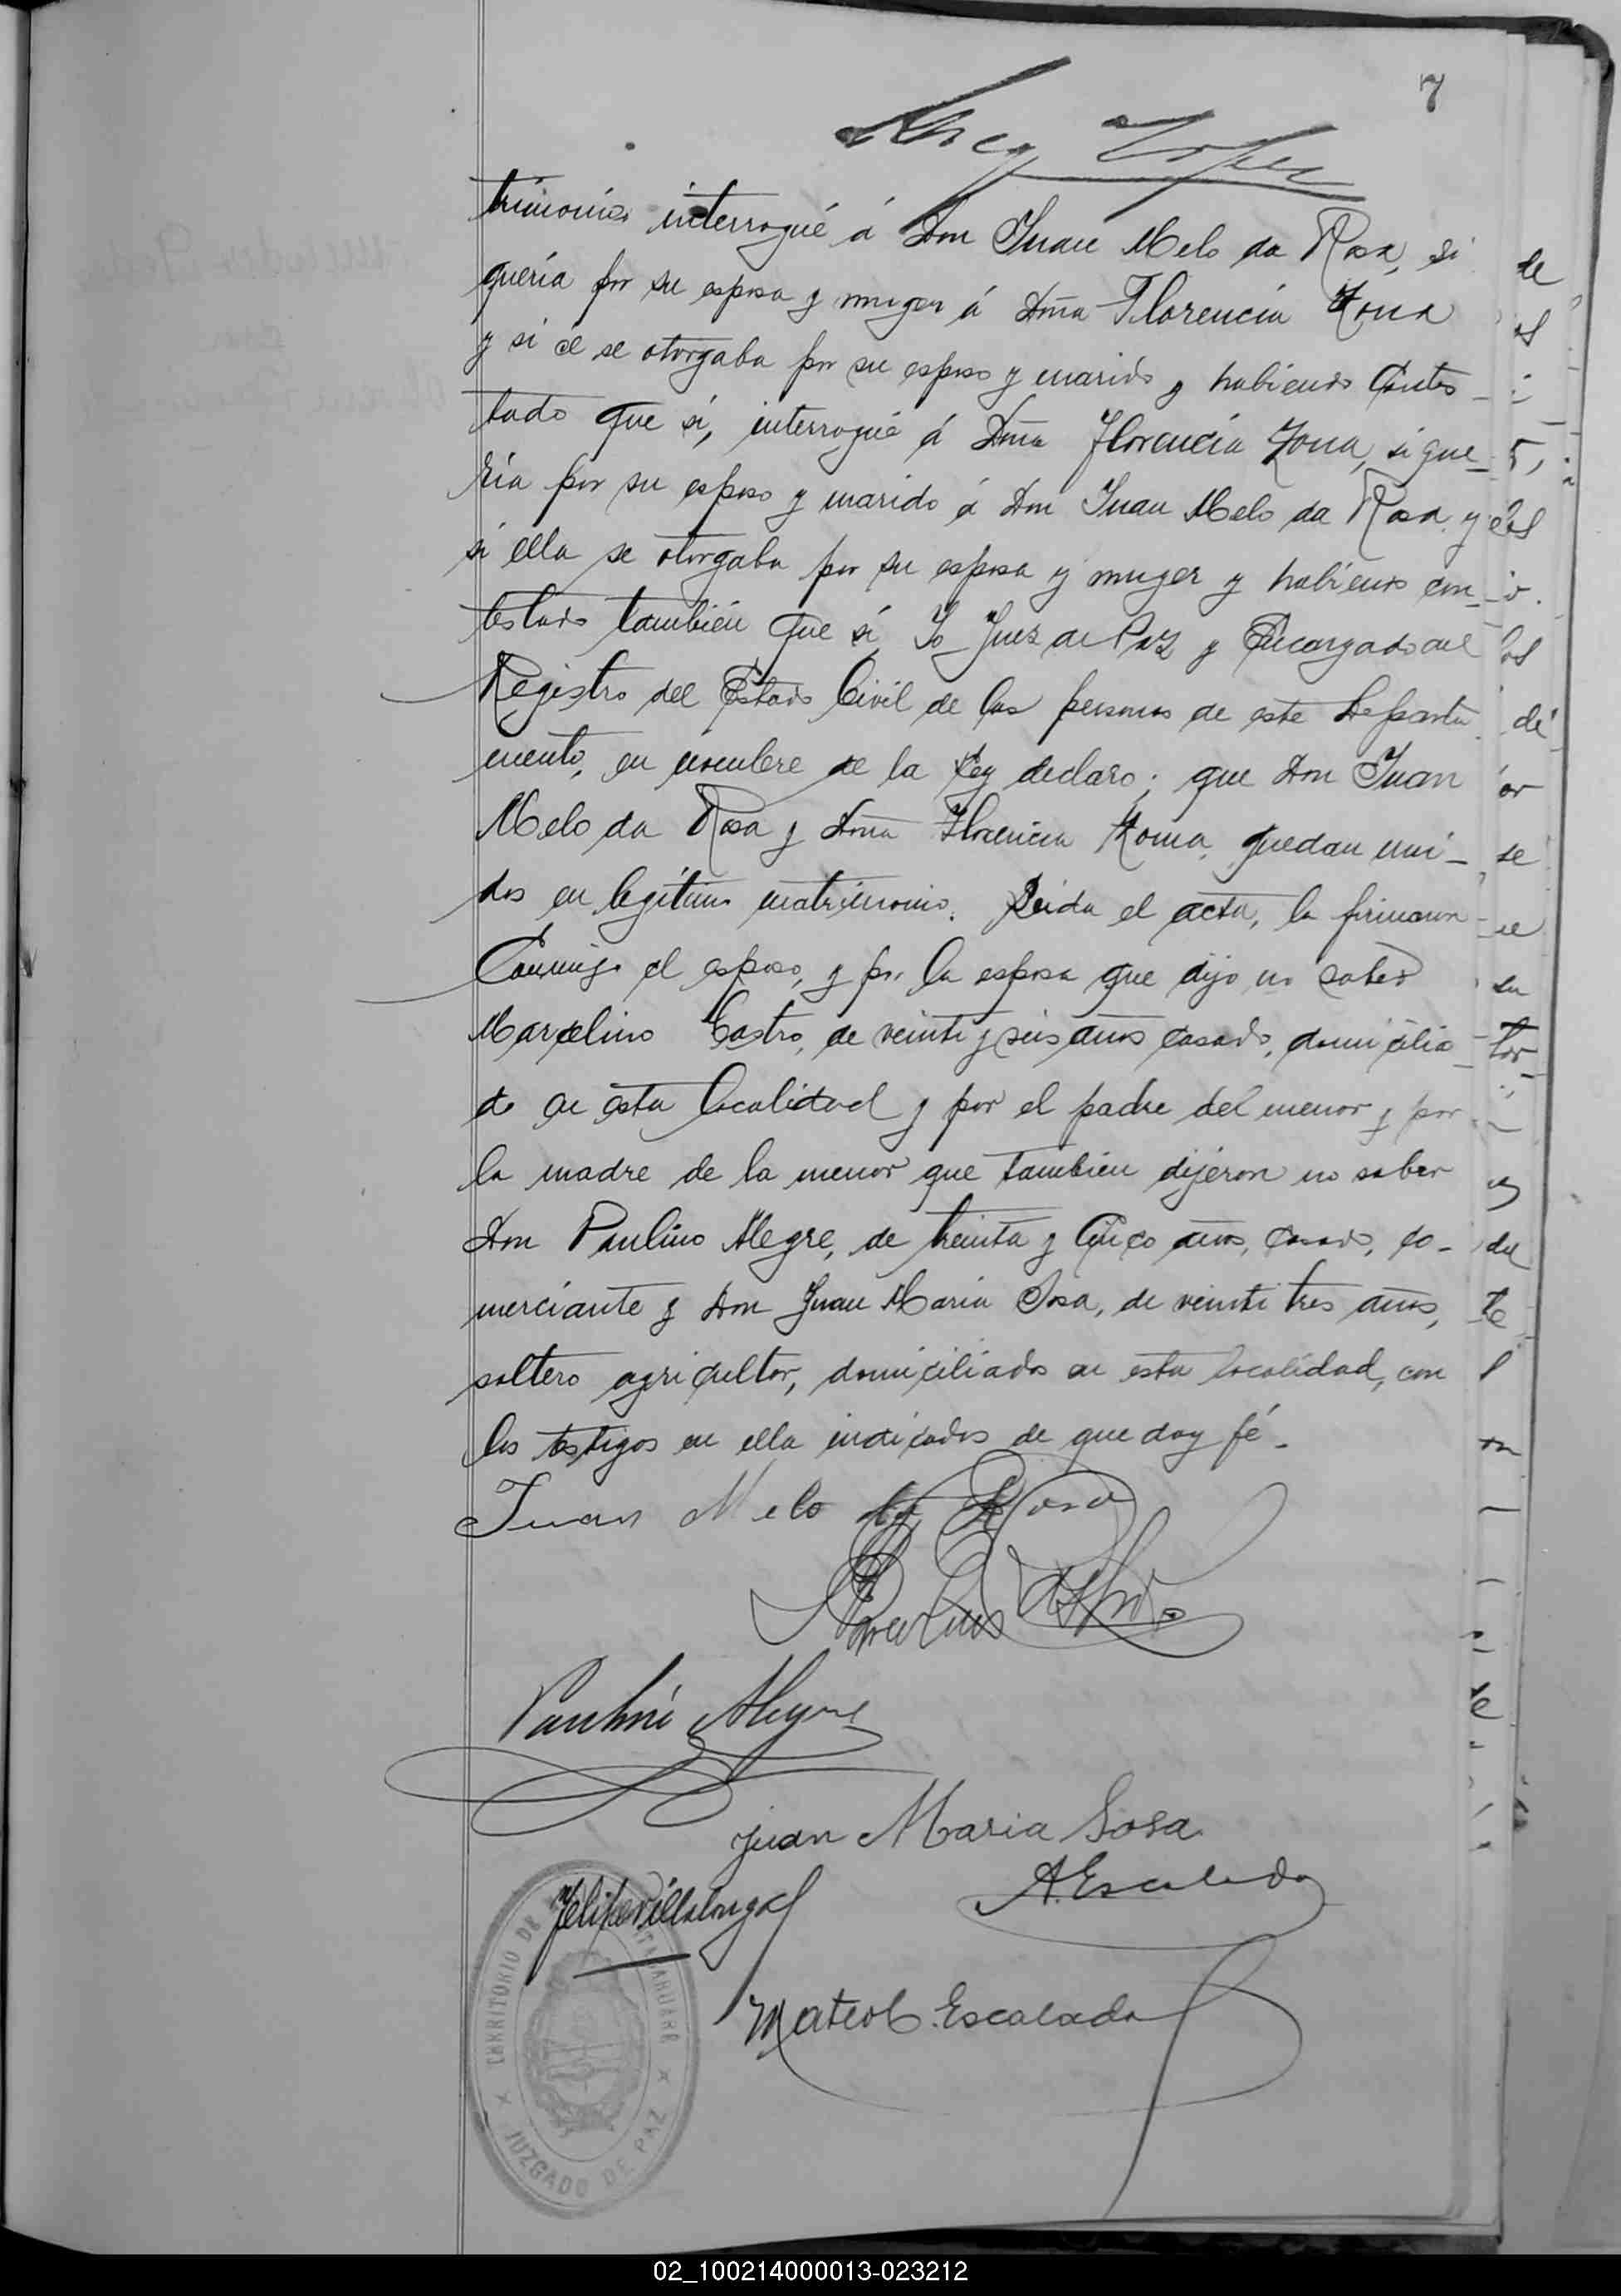 7
trimonio interrogué á Don Juan Melo da Rosa, si
quería por su esposa y muger á Dña Florencia Zona
y si él se otorgaba por su esposo y marido y habiendo contes-
tado que sí, interrogué á Dña Florencia Zona, si que-
ría por su esposo y marido á Don Juan Melo da Rosa y
si ella se otorgaba por su esposa y muger y habiendo con-
testado también que sí Yo Juez de Paz y Encargado del
Registro del Estado Civil de las personas de este Departa
mento, en nombre de la Ley declaro; que Don Juan
Melo da Rosa y Doña Florencia Zona, quedan uni-
dos en legítimo matrimonio. Leida el acta, la firmaron
Conmigo el esposo, y por la esposa que dijo no saber
Marcelino Castro, de veinte y seis años casado, domicilia
do en esta localidad y por el padre del menor y por
la madre de la menor que también dijeron no saber
Don Paulino Alegre, de treinta y cinco años, casado, co-
merciante y Don Juan María Sosa, de veinte tres años,
soltero agricultor, domiciliados en esta localidad, con
los testigos en ella indicados de que doy fé.
Juan Melo da Rosa
Marcelino Castro
Paulino Alegre
Juan Maria Sosa
A. Escalada
Felipe Villalonga
Mateo C. Escalada
TERRITORIO DE
JUZGADO DE PAZ
02_100214000013-023212